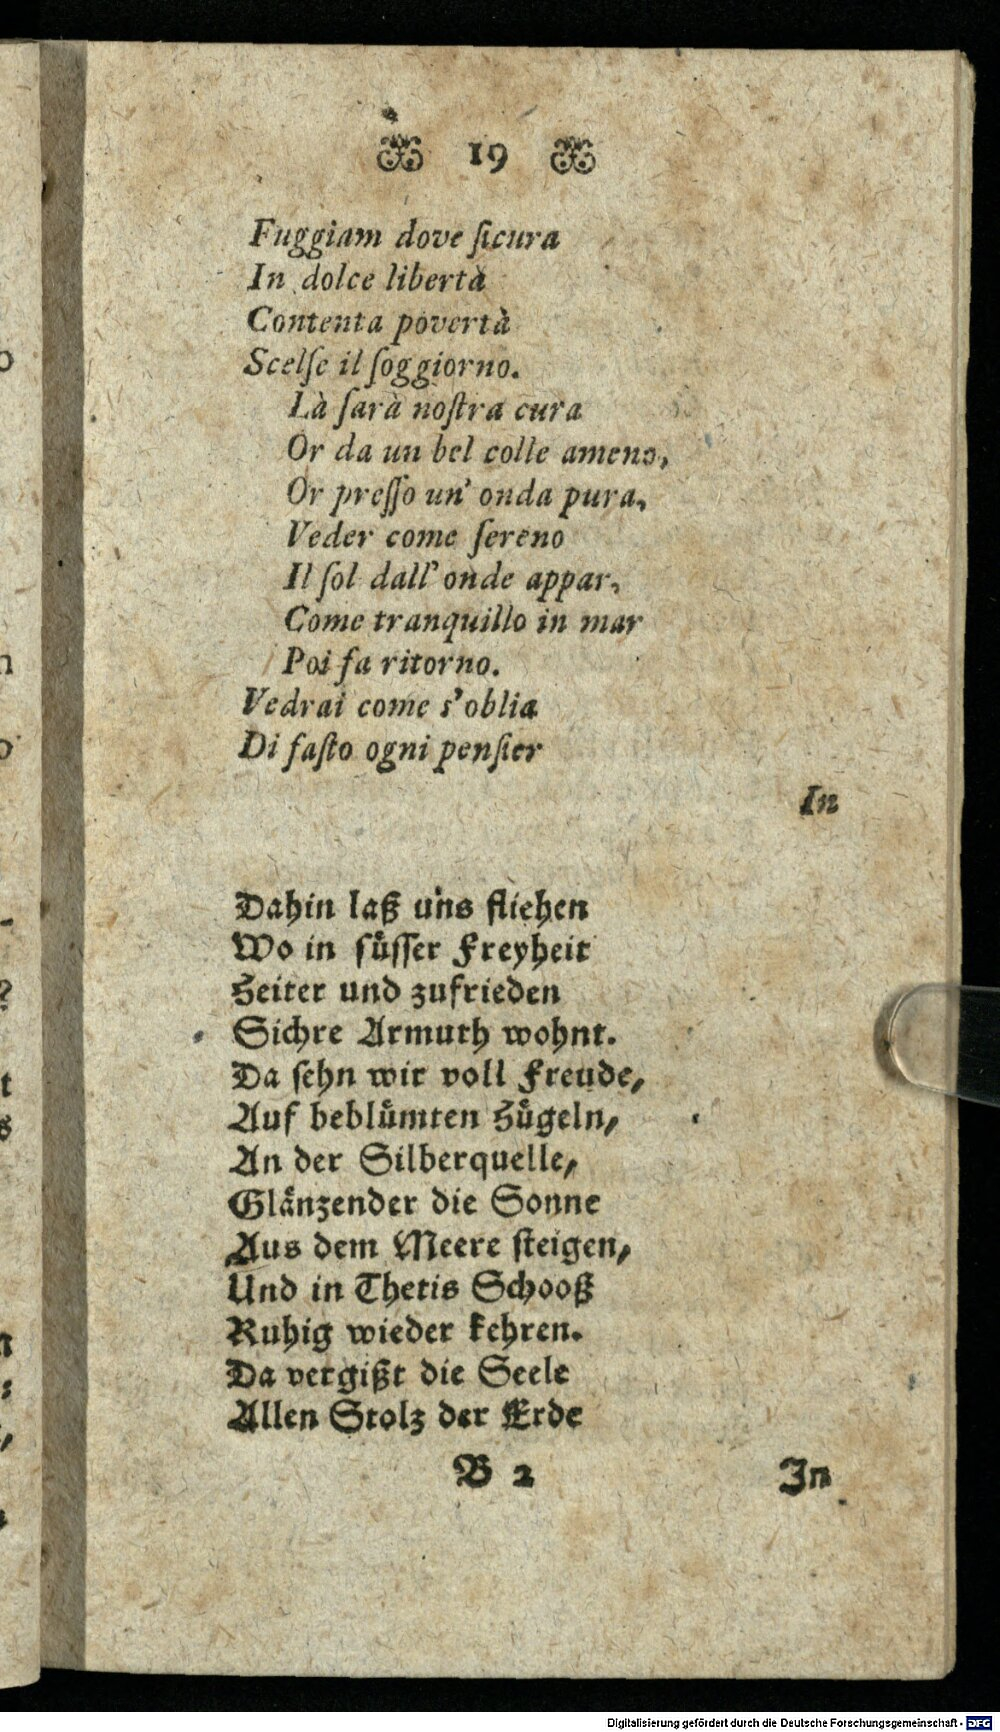 19
Fuggiam dove ſicura
In dolce libertà
Contenta povertà
Scelſe il ſoggiorno.
Là ſarà noſtra cura
Or da un bel colle ameno,
Or preſſo un' onda pura,
Veder come ſereno
Il ſol dall' onde appar,
Come tranquillo in mar
Poi fa ritorno.
Vedrai come s'oblia
Di faſto ogni penſier
In
Dahin laß uns fliehen
Wo in ſüſſer Freyheit
Heiter und zufrieden
Sichre Armuth wohnt.
Da ſehn wir voll Freude,
Auf beblümten Hügeln,
An der Silberquelle,
Glänzender die Sonne
Aus dem Meere ſteigen,
Und in Thetis Schooß
Ruhig wieder kehren.
Da vergißt die Seele
Allen Stolz der Erde
B 2 In
Digitalisierung gefördert durch die Deutsche Forschungsgemeinschaft - DFG